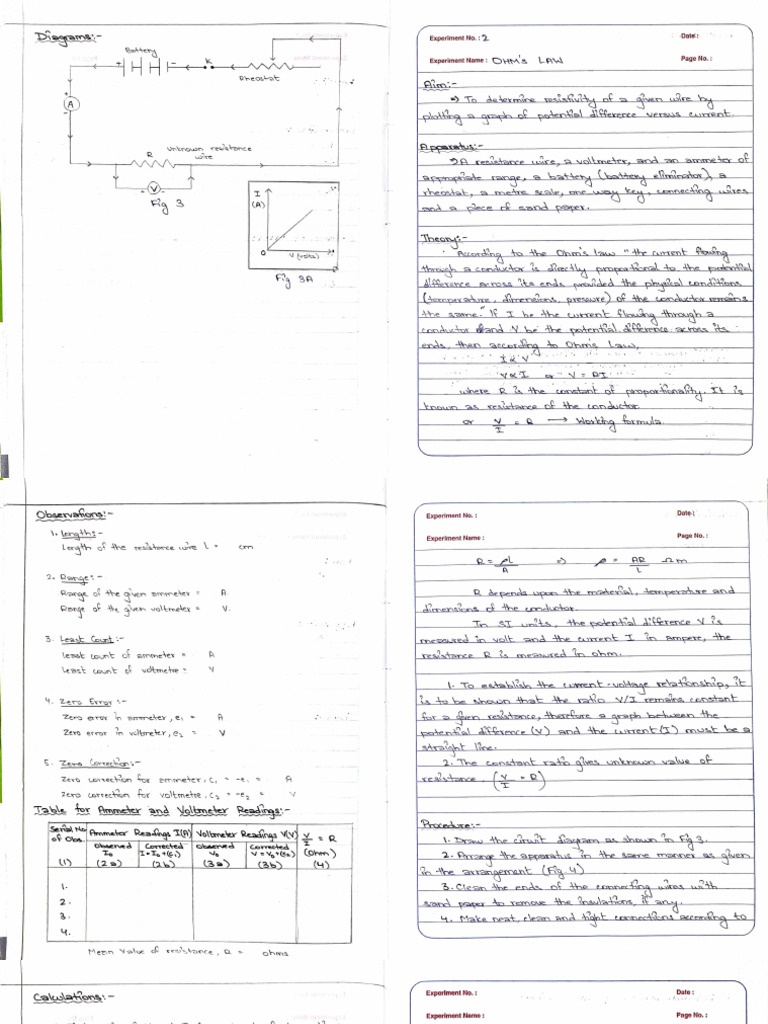 Diagrams:-
Battery
+ -
K
Rheostat
A
+
-
Unknown resistance
wire
R
V
+ -
Fig 3
I
(A)
O
V (volts)
Fig 3A
Experiment No. : 2
Date :
Experiment Name : OHM'S LAW
Page No. :
Aim:-
⇒ To determine resistivity of a given wire by
plotting a graph of potential difference versus current.
Apparatus:-
⇒ A resistance wire, a voltmeter, and an ammeter of
appropriate range, a battery (battery eliminator), a
rheostat, a metre scale, one way key, connecting wires
and a piece of sand paper.
Theory:-
According to the Ohm's law "the current flowing
through a conductor is directly proportional to the potential
difference across its ends provided the physical conditions
(temperature, dimensions, pressure) of the conductor remains
the same." If I be the current flowing through a
conductor and V be the potential difference across its
ends, then according to Ohm's Law,
I ∝ V
V ∝ I or V = RI
where R is the constant of proportionality. It is
known as resistance of the conductor.
or V/I = R → Working formula
Observations:-
1. Lengths:-
Length of the resistance wire l = cm
2. Range:-
Range of the given ammeter = A
Range of the given voltmeter = V.
3. Least Count:-
Least count of ammeter = A
Least count of voltmetre = V
4. Zero Error:-
Zero error in ammeter, e₁ = A
Zero error in voltmeter, e₂ = V
5. Zero Correction:-
Zero correction for ammeter, c₁ = -e₁ = A
Zero correction for voltmetre, c₂ = -e₂ = V
Table for Ammeter and Voltmeter Readings:-
Serial No of Obs. Ammeter Readings I(A) Voltmeter Readings V(V) V/I = R
Observed I₀ Corrected I = I₀+(c₁) Observed V₀ Corrected V = V₀+(c₂) (Ohm)
(1) (2a) (2b) (3a) (3b) (4)
1.
2.
3.
4.
Mean Value of resistance, R = ohms
Experiment No. :
Date :
Experiment Name :
Page No. :
R = ρl/A ⇒ ρ = AR/l Ωm
R depends upon the material, temperature and
dimensions of the conductor.
In SI units, the potential difference V is
measured in volt and the current I in ampere, the
resistance R is measured in ohm.
1. To establish the current-voltage relationship, it
is to be shown that the ratio V/I remains constant
for a given resistance, therefore a graph between the
potential difference (V) and the current (I) must be a
straight line.
2. The constant ratio gives unknown value of
resistance. (V/I = R)
Procedure:-
1. Draw the circuit diagram as shown in Fig 3.
2. Arrange the apparatus in the same manner as given
in the arrangement (Fig 4)
3. Clean the ends of the connecting wires with
sand paper to remove the insulations, if any.
4. Make neat, clean and tight connections according to
Calculations:-
Experiment No. :
Date :
Experiment Name :
Page No. :